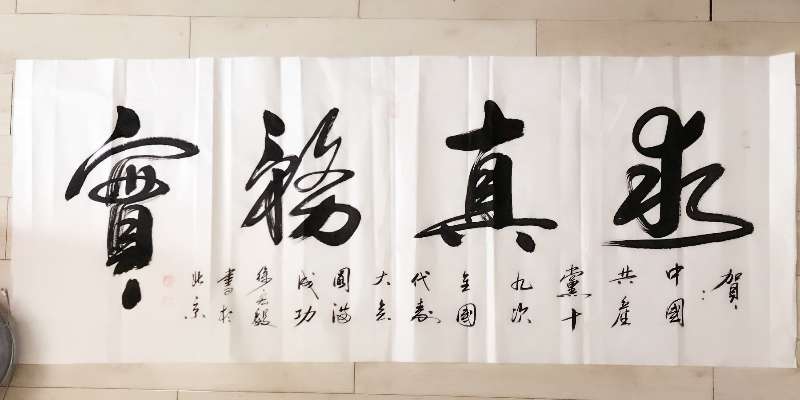 求真務實
賀：
中國
共產
黨十
九次
全國
代表
大会
圓滿
成功
毅
書於
北京